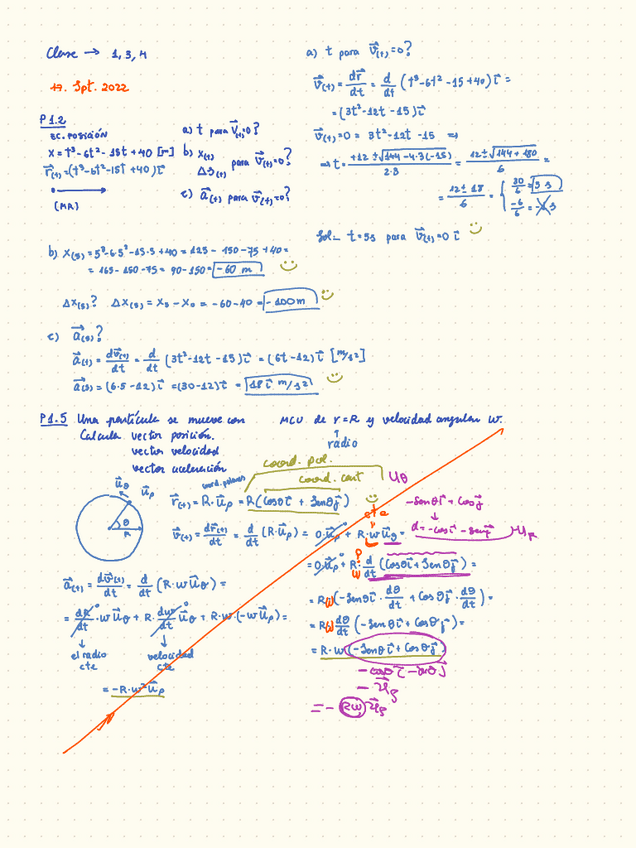 Clase → 1, 3, 4
17. Spt. 2022
P1.2
EC. POSICIÓN
x = t³ - 6t² - 15t + 40 [m]
r⃗(t) = (t³ - 6t² - 15t + 40) i⃗
(MR)
a) t para v⃗(t)=0?
b) x(t) para v⃗(t)=0?
Δs(t)
c) a⃗(t) para v⃗(t)=0?
a) t para v⃗(t)=0?
v⃗(t) = dr⃗/dt = d/dt (t³ - 6t² - 15 + 40) i⃗ =
= (3t² - 12t - 15) i⃗
v⃗(t) = 0 = 3t² - 12t - 15 ⇒
⇒ t = +12 ± √(144 - 4·3(-15)) / 2·3 = 12 ± √(144 + 180) / 6 =
= 12 ± 18 / 6 = { 30/6 = 5 s
-6/6 = -1 s
Sol = t = 5s para v⃗(t) = 0 i⃗
b) x(5) = 5³ - 6·5² - 15·5 + 40 = 125 - 150 - 75 + 40 =
= 165 - 150 - 75 = 90 - 150 = -60 m
Δx(5)? Δx(5) = x5 - x0 = -60 - 40 = -100 m
c) a⃗(5)?
a⃗(t) = dv⃗(t)/dt = d/dt (3t² - 12t - 15) i⃗ = (6t - 12) i⃗ [m/s²]
a⃗(5) = (6·5 - 12) i⃗ = (30 - 12) i⃗ = 18 i⃗ m/s²
P1.5 Una partícula se mueve con MCU de r = R y velocidad angular w.
radio
Calcula vector posición.
vector velocidad
vector aceleración
coord. pol.
coord. cart
coord. polares
u⃗θ u⃗ρ
θ
R
r⃗(t) = R · u⃗ρ = R (cosθ i⃗ + senθ j⃗)
v⃗(t) = dr⃗(t)/dt = d/dt (R·u⃗ρ) = 0·u⃗ρ + R·w u⃗θ =
cte
= 0·u⃗ρ + R · d/dt (cosθ i⃗ + senθ j⃗) =
= R (-senθ i⃗ · dθ/dt + cosθ j⃗ · dθ/dt) =
= R dθ/dt (-senθ i⃗ + cosθ j⃗) =
= R·w (-senθ i⃗ + cosθ j⃗)
uθ
-senθ i⃗ + cosθ j⃗
d = -cos i⃗ - sen j⃗
uR
- cosθ i⃗ - senθ j⃗
- u⃗ρ
= - Rw u⃗ρ
a⃗(t) = dv⃗(t)/dt = d/dt (R·w u⃗θ) =
= dR/dt · w u⃗θ + R · dw/dt u⃗θ + R·w·(-w u⃗ρ) =
el radio cte
velocidad cte
= -R·w² u⃗ρ